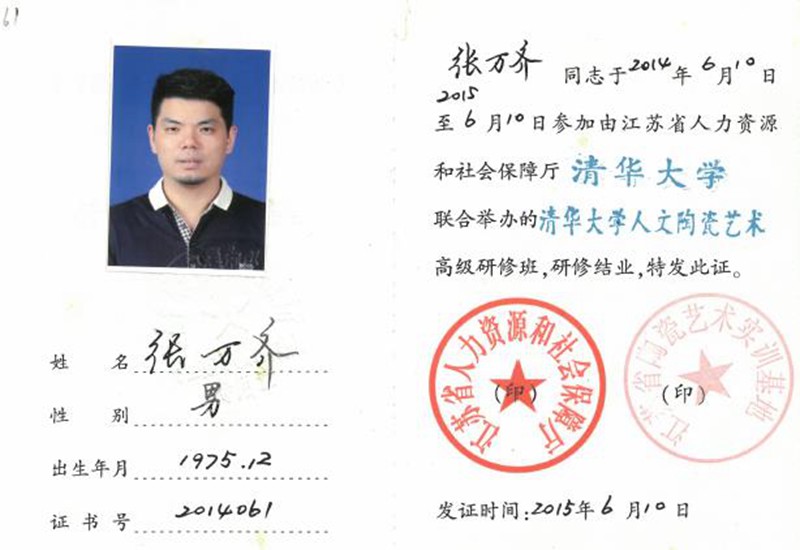 61
姓 名 张万齐
性 别 男
出生年月 1975.12
证书号 2014061
张万齐 同志于2014年6月10日
2015
至6月10日参加由江苏省人力资源
和社会保障厅 清华大学
联合举办的清华大学人文陶瓷艺术
高级研修班,研修结业,特发此证。
江苏省人力资源和社会保障厅
(印)
江苏省陶瓷艺术实训基地
(印)
发证时间:2015年6月10日